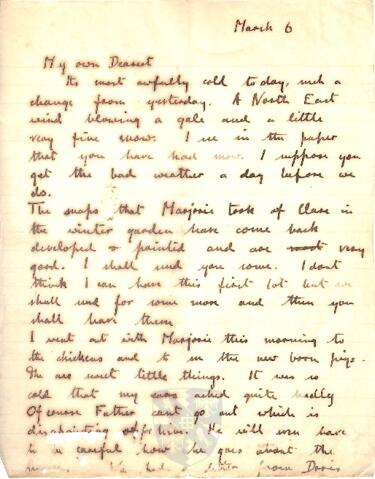 March 6
My own Dearest
Its most awfully cold today, such a
change from yesterday. A North East
wind blowing a gale and a little
very fine snow. I see in the paper
that you have had snow. I suppose you
get the bad weather a day before we
do.
The snaps that Marjorie took of Clare in
the winter garden have come back
developed & printed and are most very
good. I shall send you some. I dont
think I can have this first lot but we
shall send for some more and then you
shall have them
I went out with Marjorie this morning to
the chickens and to see the new born pigs.
The are sweet little things. It was so
cold that my ears ached quite badly
Of course Father cant go out which is
disappointing for him. He will even have
to be careful how he goes about the
We had a letter from Doris